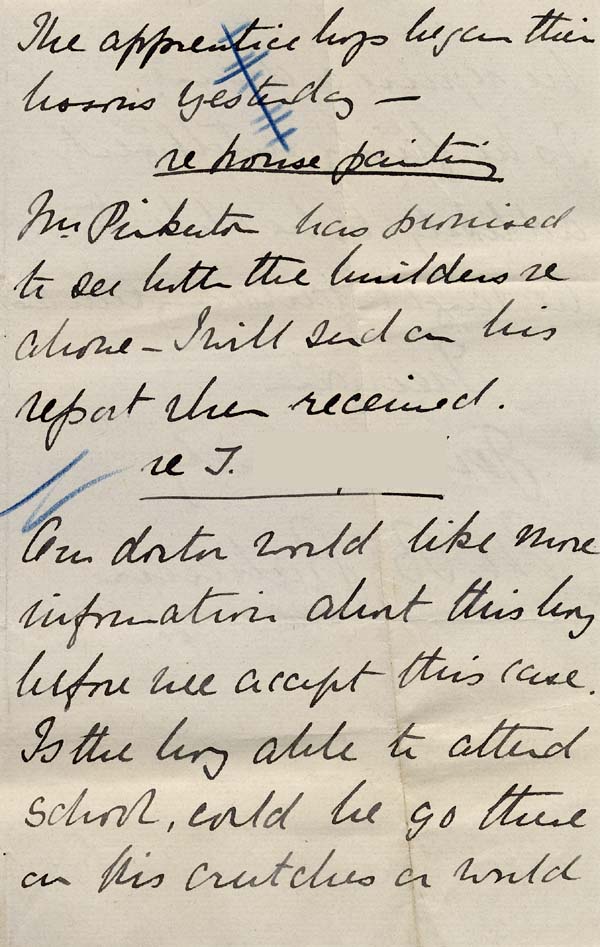 The apprentice boys began their
lessons yesterday –
re house painting
Mr Pinkerton has promised
to see both the builders re
above – I will send on his
report when received.
re J.
Our doctor would like more
information about this boy
before we accept this case.
Is the boy able to attend
school, could he go there
on his crutches or would